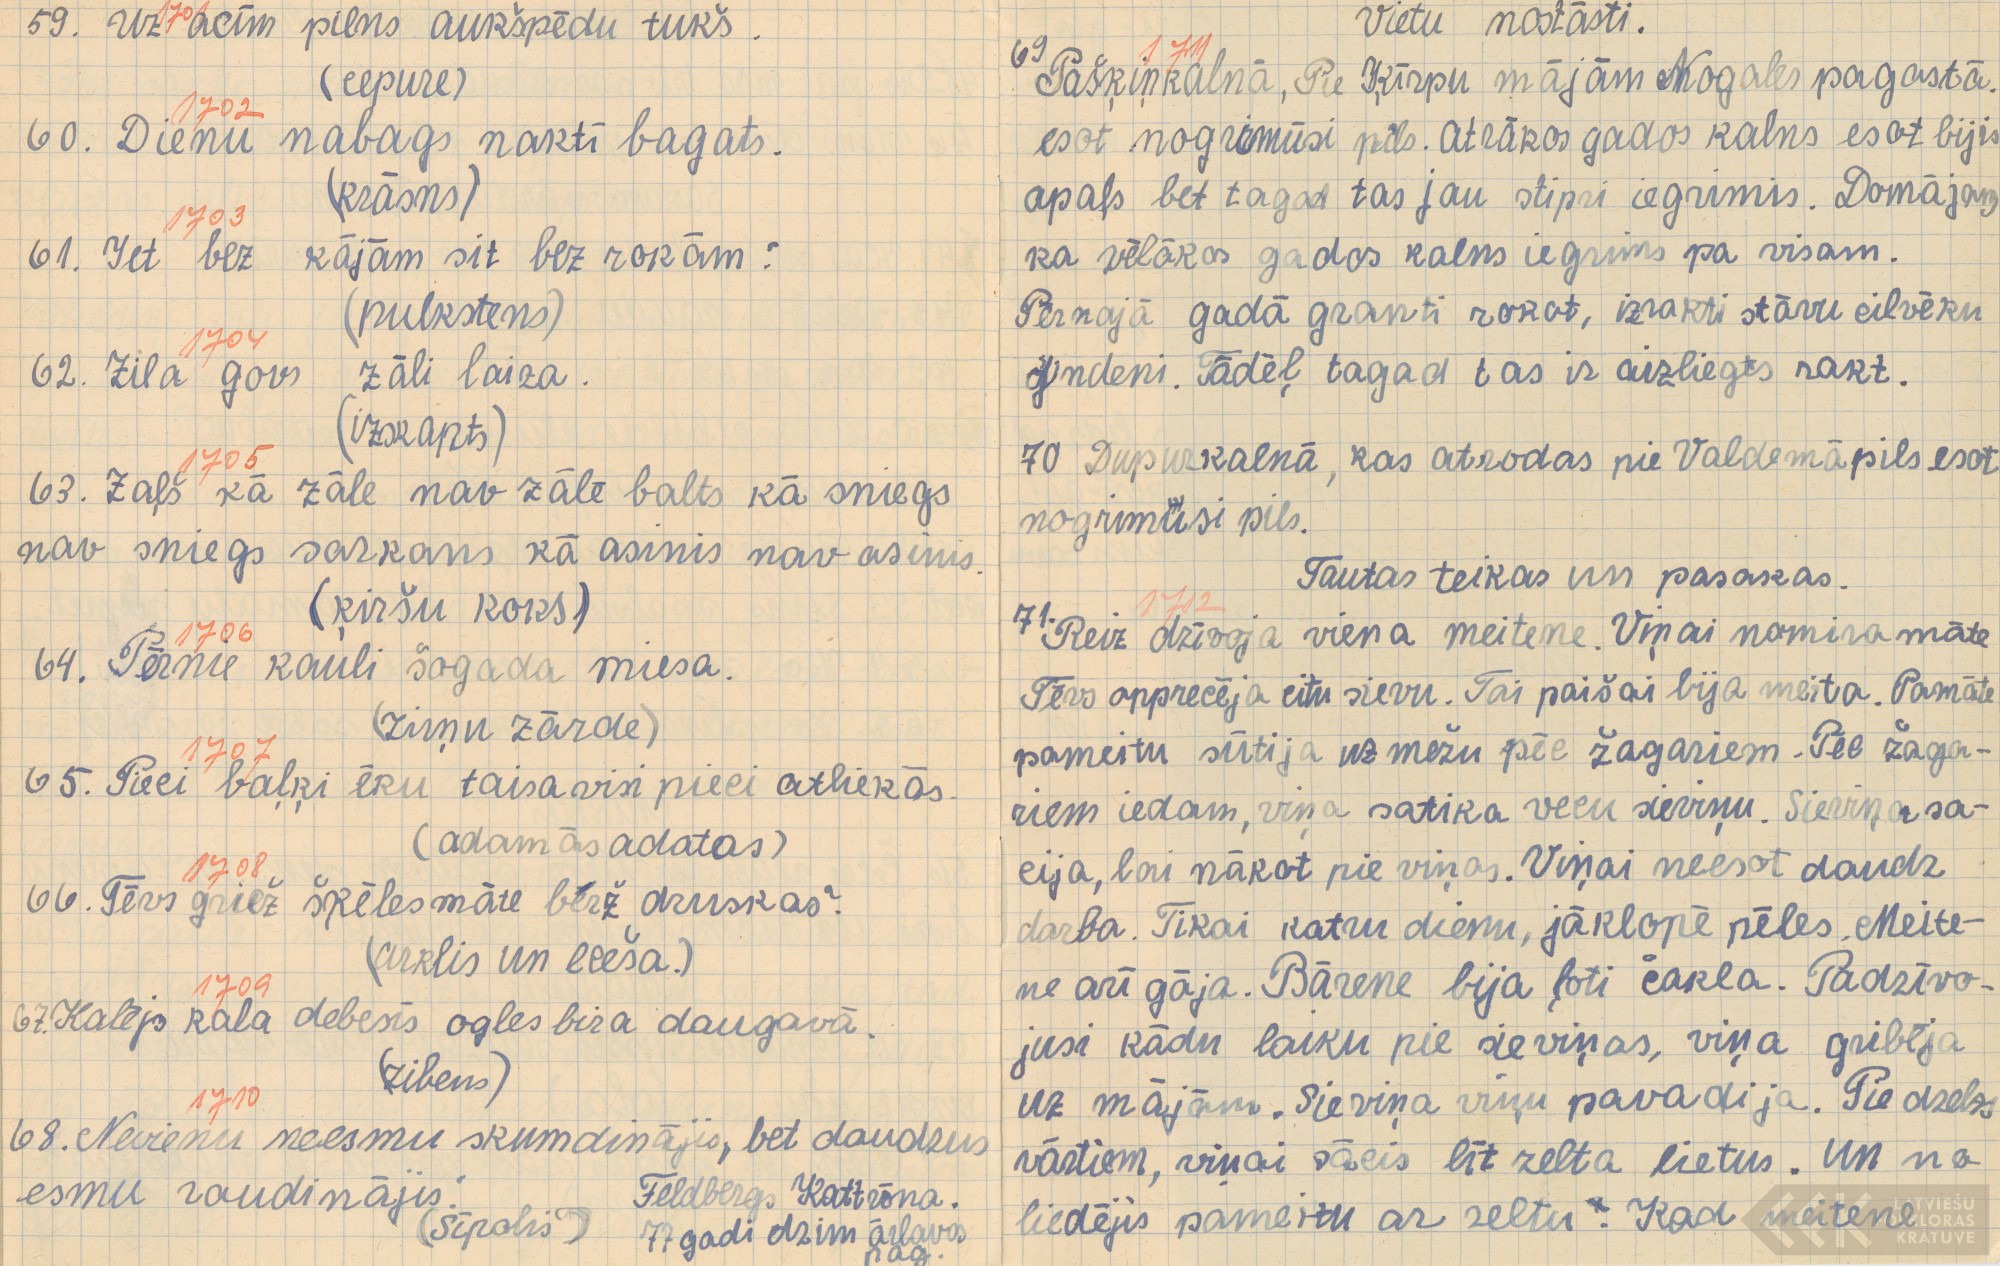 59. Uz acīm pilns aukšpēdu tukš.
1701
(cepure)
1702
60. Dienu nabags naktī bagats.
(krāsns)
1703
61. Iet bez kājām sit bez rokām?
(pulkstens)
1704
62. Zila govs zāli laiza.
(izskapts)
1705
63. Zaļš kā zāle nav zāle balts kā sniegs
nav sniegs sarkans kā asinis nav asinis.
(ķiršu koks)
1706
64. Pērnie kauli šogada miesa.
(zirņu zārde)
1707
65. Pieci baļķi ēku taisa visi pieci atliekās.
(adamās adatas)
1708
66. Tēvs griež šķēles māte bērž druskas?
(arklis un eceša.)
1709
67. Kalējs kala debesīs ogles bira daugavā.
(zibens)
1710
68. Nevienu neesmu skumdinājis, bet daudzus
esmu raudinājis?
(Sīpolis)
Feldbergs Kattrīna.
77 gadi dzim ārlavas
pag.
Vietu nostāsti.
1711
69 Pašķiņkalnā, Pie Ķīrpu mājām Nogales pagastā.
esot nogrimūsi pils. Atrākos gados kalns esot bijis
apaļs bet tagad tas jau stipri iegrimis. Domājams
ka vēlākos gados kalns iegrims pa visam.
Pērnajā gadā granti rokot, izrakti stāvu cilvēku
ģindeni. Tādēļ tagad tas ir aizliegts rakt.
70 Dupurkalnā, kas atrodas pie Valdemāpils esot
nogrimusi pils.
Tautas teikas un pasakas.
1712
71. Reiz dzīvoja viena meitene. Viņai nomira māte
Tēvs apprecēja citu sievu. Tai paišai bija meita. Pamāte
pameitu sūtija uz mežu pēc žagariem. Pēc žaga-
riem iedam, viņa satika vecu sieviņu. Sieviņa sa-
cija, lai nākot pie viņas. Viņai neesot daudz
darba. Tikai katru dienu, jāklopē pēles. Meite-
ne arī gāja. Bārene bija ļoti čakla. Padzīvo-
jusi kādu laiku pie sieviņas, viņa gribēja
uz mājām. Sieviņa viņu pavadija. Pie dzelzs
vārtiem, viņai sācis līt zelta lietus. Un no
liedējis pameitu ar zeltu. Kad meitene
LATVIEŠU
FOLKLORAS
KRĀTUVE